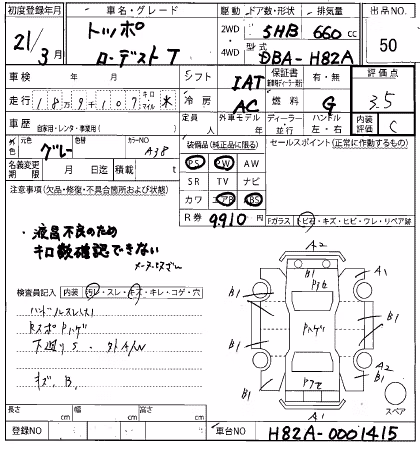 初度登録年月 車名・グレード 駆動 ドア数・形状 排気量 出品NO.
21/3月 トッポ 2WD 5HB 660cc 50
ローデスト T 4WD 型式 DBA-H82A
車検 年 月 シフト IAT 保証書 有・無 評価点
走行 18万9千107 キロ マイル 冷房 AC 燃料 G 3.5
車歴 自家用・レンタ・事業用( ) 定員 人 外車モデル 年 ディーラー・並行 ハンドル 左・右 内装評価 C
外色 元色 グレー 色替 カラーNO A38 装備品(純正品に限る) セールスポイント(正常に作動するもの)
名義変更期限 月 日迄 積載 t PS PW AW
注意事項(欠品・修復・不具合箇所および状態) SR TV ナビ
カワ エアB ABS
R券 9910円
Fガラス トビ石・キズ・ヒビ・ワレ・リペア跡
液晶不良のため
キロ数確認できない
検査員記入 内装 汚レ・スレ・キズ・キレ・コゲ・穴
ハンドルスレ(大)
下廻りS
キズ、B
A2
B1 B1 A1
B1 Pハゲ B1
A2
B1 B1
A1
スペア
長さ cm 幅 cm 高さ cm
登録NO 車台NO H82A-0001415